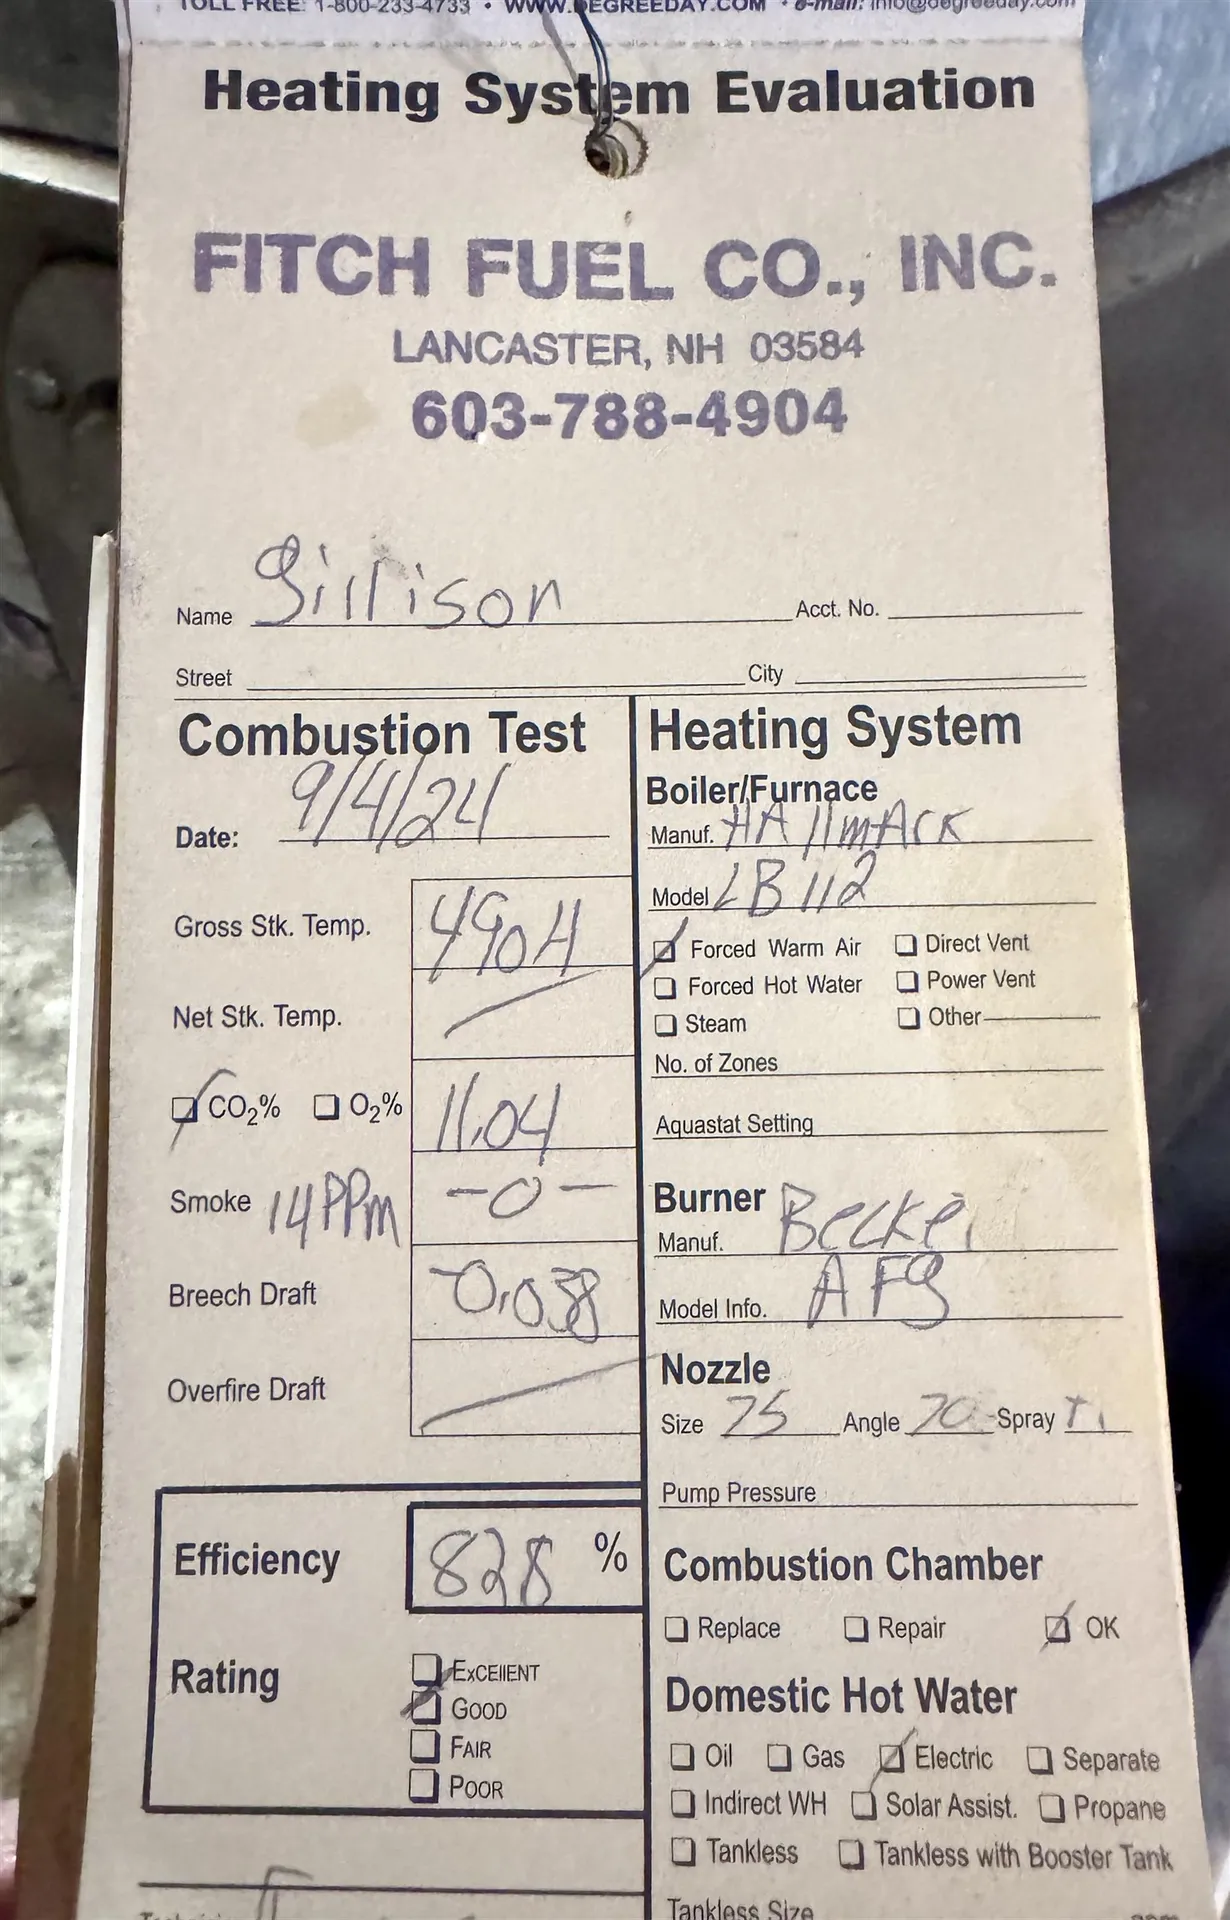 TOLL FREE: 1-800-233-4733 • WWW.DEGREEDAY.COM • e-mail: info@degreeday.com
Heating System Evaluation
FITCH FUEL CO., INC.
LANCASTER, NH 03584
603-788-4904
Name Gillison Acct. No.
Street City
Combustion Test
Date: 9/4/24
Gross Stk. Temp. 490.4
Net Stk. Temp.
CO2% O2% 11.04
Smoke 14 PPm -0-
Breech Draft -0.038
Overfire Draft
Efficiency 828 %
Rating
EXCEllENT
GOOD
FAIR
POOR
Heating System
Boiler/Furnace
Manuf. HAllmArk
Model LB 112
Forced Warm Air Direct Vent
Forced Hot Water Power Vent
Steam Other
No. of Zones
Aquastat Setting
Burner
Manuf. Becke
Model Info. AFG
Nozzle
Size 75 Angle 70 Spray
Pump Pressure
Combustion Chamber
Replace Repair OK
Domestic Hot Water
Oil Gas Electric Separate
Indirect WH Solar Assist. Propane
Tankless Tankless with Booster Tank
Tankless Size